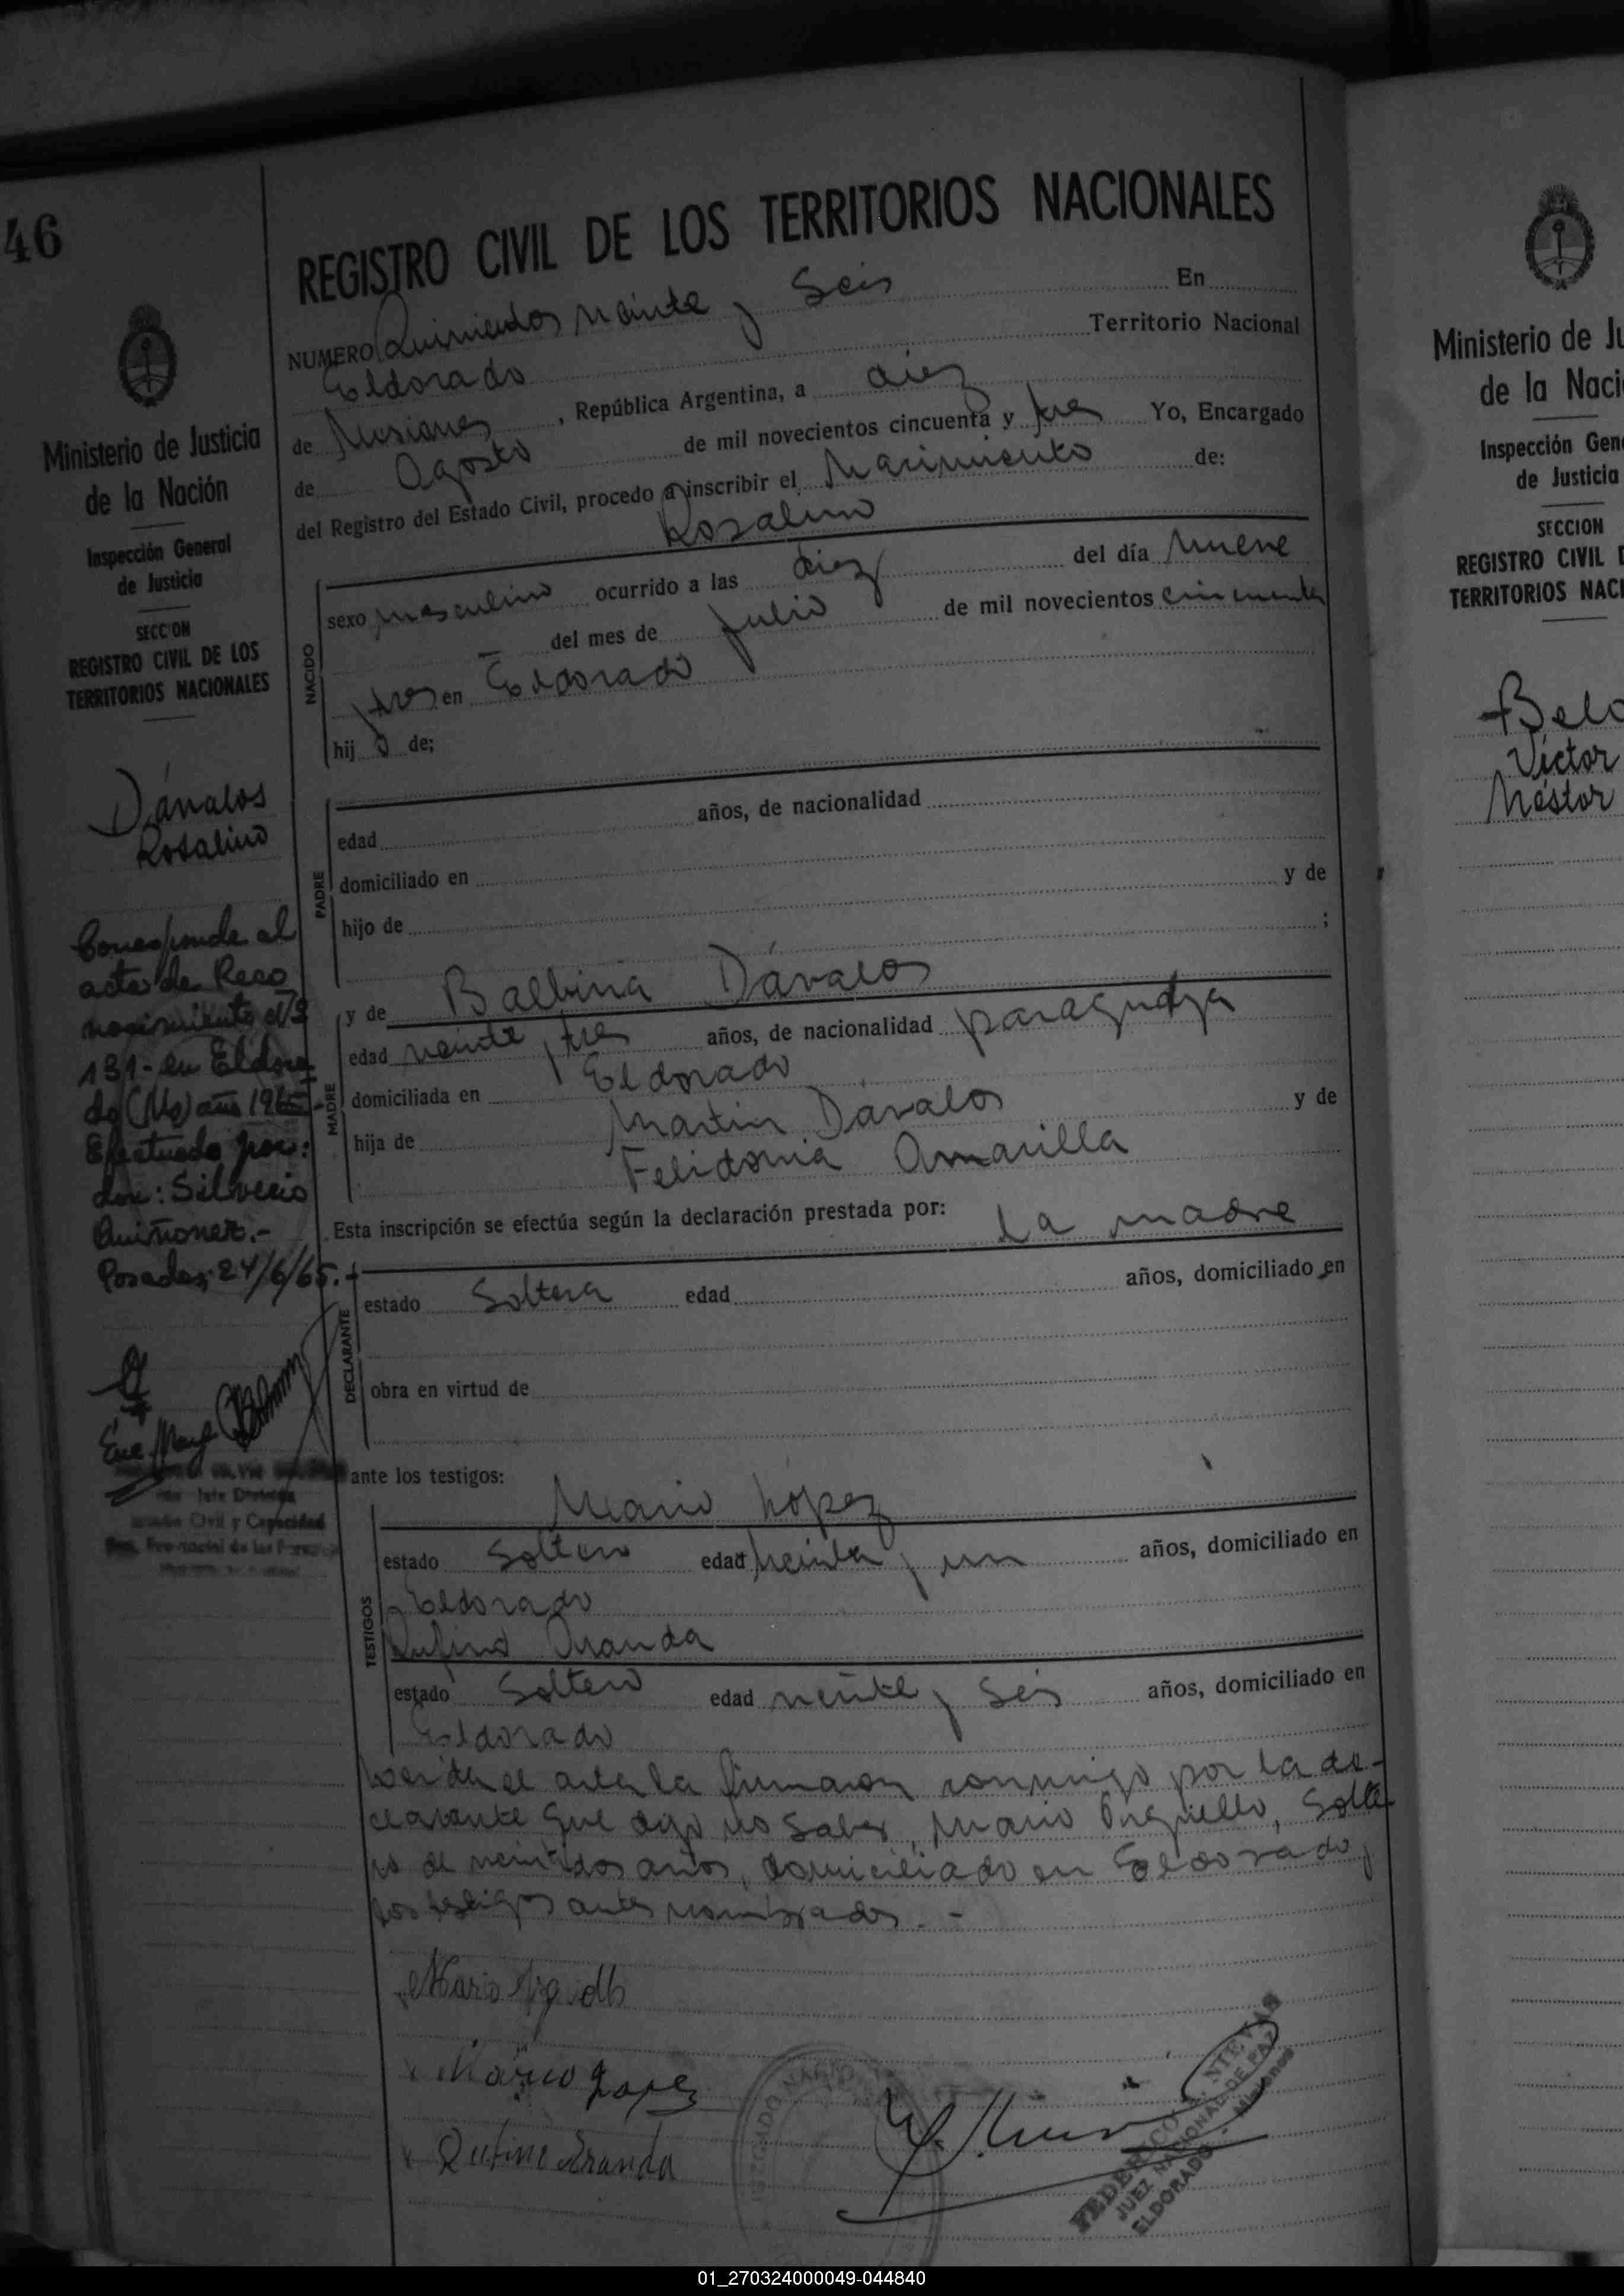 46
Ministerio de Justicia
de la Nación
Inspección General
de Justicia
SECCION
REGISTRO CIVIL DE LOS
TERRITORIOS NACIONALES
Dávalos
Rosalino
Corresponde al
acta de Reco
nocimiento nº
131- en Eldora
do (Ms) año 1965-
Efectuado por:
don: Silverio
Quiñonez.-
Posadas, 24/6/65.-
Jefe División
Civil y Capacidad
REGISTRO CIVIL DE LOS TERRITORIOS NACIONALES
NUMERO Quinientos veinte y Seis En
Eldorado Territorio Nacional
de Misiones, República Argentina, a diez
de Agosto de mil novecientos cincuenta y tres Yo, Encargado
del Registro del Estado Civil, procedo a inscribir el Nacimiento de:
Rosalino
NACIDO
sexo masculino ocurrido a las diez del día nueve
— del mes de Julio de mil novecientos cincuenta
y tres en Eldorado
hij o de;
PADRE
edad años, de nacionalidad
domiciliado en
hijo de y de
;
MADRE
y de Balbina Dávalos
edad veinte y tres años, de nacionalidad paraguaya
domiciliada en Eldorado
hija de Martin Dávalos y de
Felidonia Amarilla
Esta inscripción se efectúa según la declaración prestada por: la madre
DECLARANTE
estado Soltera edad años, domiciliado en
obra en virtud de
ante los testigos:
TESTIGOS
Mario López
estado Soltero edad treinta y un años, domiciliado en
Eldorado
Rufino Aranda
estado Soltero edad veinte y Seis años, domiciliado en
Eldorado
el acta la firmaron conmigo por la de-
clarante que dijo no saber, Mario Arguello, Solte
ro de veintidos años, domiciliado en Eldorado y
los testigos antes nombrados.-
Mario
Mario Lopez
Rufino Aranda
JUZGADO NACIO
FEDERICO A. NIEVAS
JUEZ NACIONAL DE PAZ
ELDORADO - Misiones
Ministerio de Ju
de la Naci
Inspección Gen
de Justicia
SECCION
REGISTRO CIVIL D
TERRITORIOS NACI
Belo
Víctor
Néstor
01_270324000049-044840